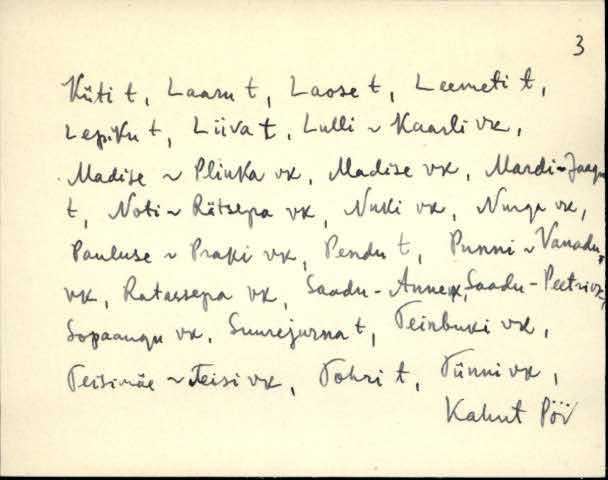 3
Küti t, Laasu t, Laose t, Leemeti t,
Lepiku t, Liiva t, Lulli ~ Kaarli vk,
Madise ~ Pliuka vk, Madise vk, Mardi-Jaagu
t, Noti ~ Rätsepa vk, Nuki vk, Nurga vk,
Pauluse ~ Praki vk, Pendu t, Punni ~ Vanadu
vk, Ratassepa vk, Saadu-Anne vk, Saadu-Peetri vk,
Sopaaugu vk, Suurejurna t, Teinbuki vk,
Teisimäe ~ Teisi vk, Tohri t, Tünni vk,
Kahut Pöi